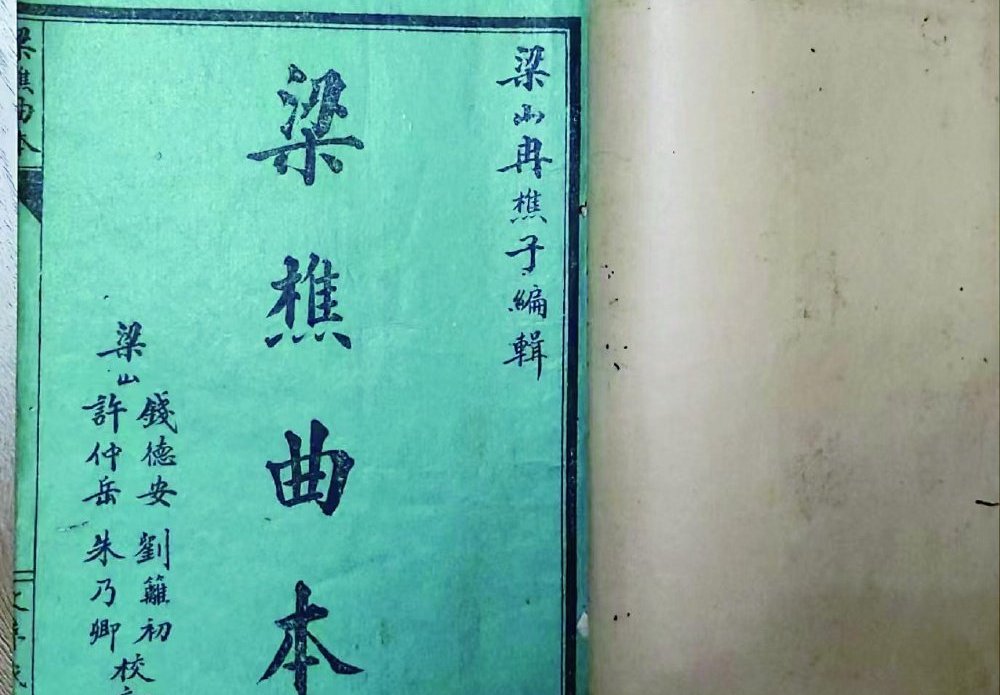 梁山冉樵子編輯
梁樵曲本
梁山
錢德安 劉籬初
許仲岳 朱乃卿
校
梁樵曲本